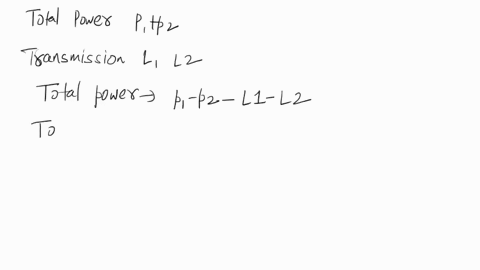 Total Power P1+p2
Transmission L1 L2
Total power → p1-p2-L1-L2
To